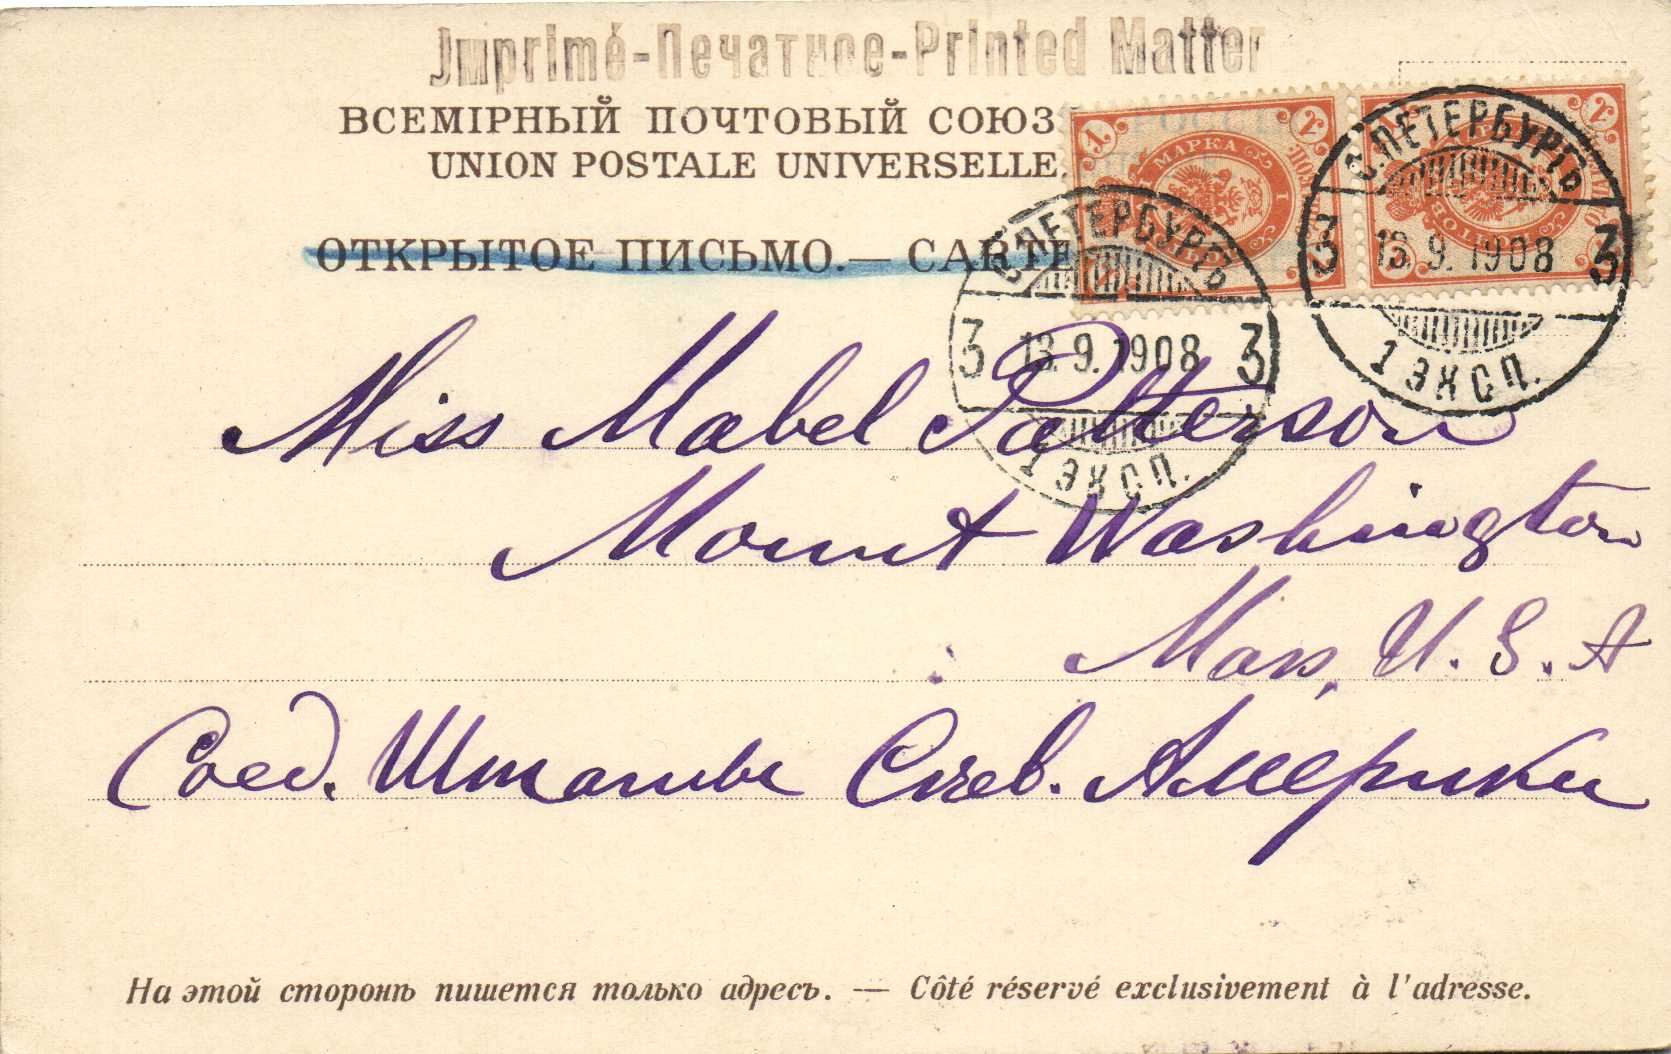 Imprimé-Печатное-Printed Matter
ВСЕМІРНЫЙ ПОЧТОВЫЙ СОЮЗ
UNION POSTALE UNIVERSELLE.
ОТКРЫТОЕ ПИСЬМО.— CARTE
МАРКА
1
1
С.ПЕТЕРБУРГЪ
3 13.9.1908 3
1 ЭКСП.
С.ПЕТЕРБУРГЪ
3 13.9.1908 3
1 ЭКСП.
Miss Mabel Patterson
Mount Washington
Mass, U.S.A
Соед. Штаты Сѣв. Америки
На этой сторонѣ пишется только адресъ. — Côté réservé exclusivement à l'adresse.